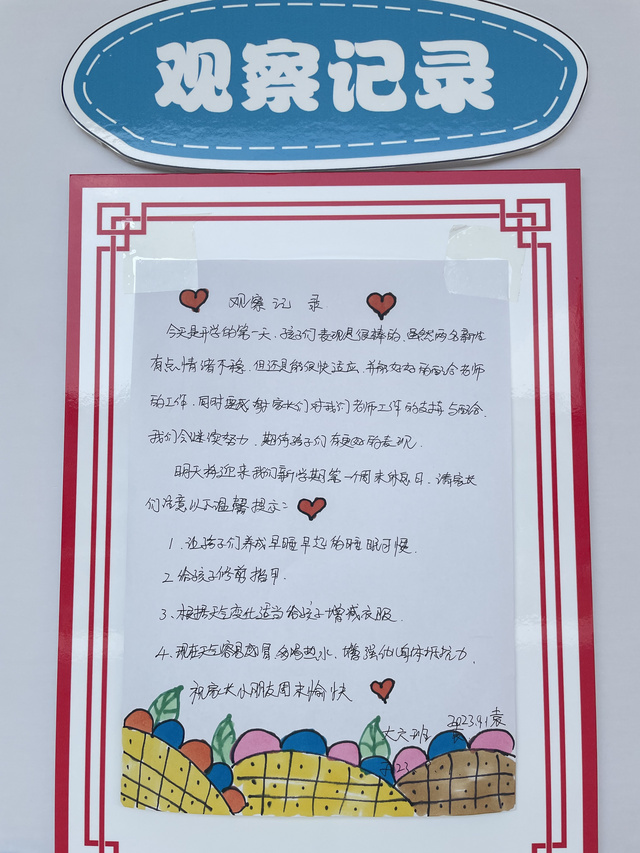 观察记录
观察记录
今天是开学的第一天,孩子们表现是很棒的,虽然两名新生
有点情绪不稳,但还是能很快适应,并能好好的配合老师
的工作,同时要感谢家长们对我们老师工作的支持与配合,
我们会继续努力,期待孩子们有更好的表现。
明天将迎来我们新学期第一个周末休息日,请家长
们注意以下温馨提示:
1. 让孩子们养成早睡早起的睡眠习惯.
2 给孩子修剪指甲.
3、根据天气变化适当给孩子增减衣服
4、现在天气容易感冒,多喝热水,增强他们身体抵抗力
祝家长小朋友周末愉快
大六班 2023.9.1 袁
2023